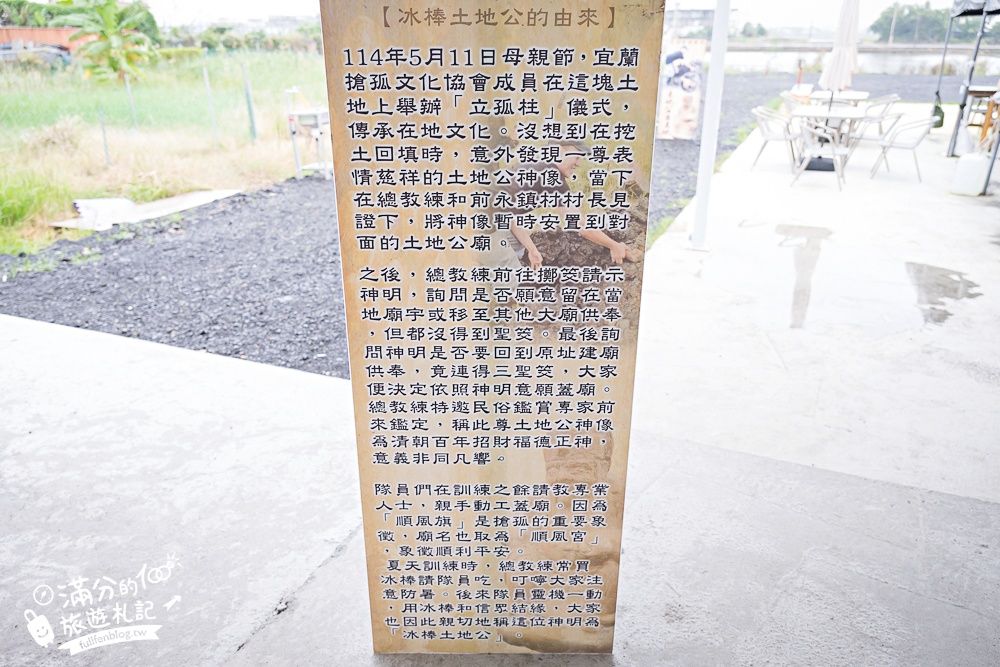 【冰棒土地公的由來】
114年5月11日母親節，宜蘭
搶孤文化協會成員在這塊土
地上舉辦「立孤柱」儀式，
傳承在地文化。沒想到在挖
土回填時，意外發現一尊表
情慈祥的土地公神像，當下
在總教練和前永鎮村村長見
證下，將神像暫時安置到對
面的土地公廟。
之後，總教練前往擲筊請示
神明，詢問是否願意留在當
地廟宇或移至其他大廟供奉
，但都沒得到聖筊。最後詢
問神明是否要回到原址建廟
供奉，竟連得三聖筊，大家
便決定依照神明意願蓋廟。
總教練特邀民俗鑑賞專家前
來鑑定，稱此尊土地公神像
為清朝百年招財福德正神，
意義非同凡響。
隊員們在訓練之餘請教專業
人士，親手動工蓋廟。因為
「順風旗」是搶孤的重要象
徵，廟名也取為「順風宮」
，象徵順利平安。
夏天訓練時，總教練常買
冰棒請隊員吃，叮嚀大家注
意防暑。後來隊員靈機一動
，用冰棒和信眾結緣，大家
也因此親切地稱這位神明為
「冰棒土地公」。
滿分的
旅遊札記
fullfenblog.tw